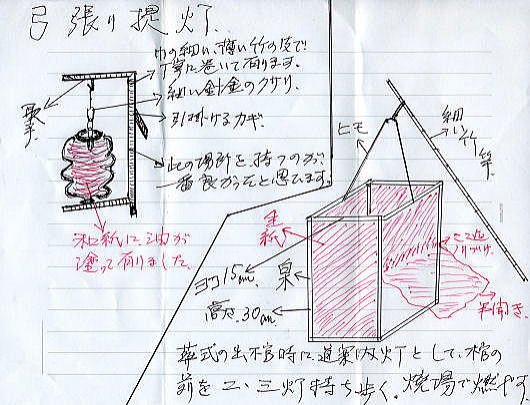 弓張り提灯
巾の細い、薄い竹の皮で
丁寧に巻いて有ります。
細い針金のクサリ。
引掛けるカギ。
此の場所を持つのが、
一番良かったと思います。
和紙に油が
塗って有りました。
ヒモ
細い竹竿。
ヨコ15cm
高さ30cm
半開き。
葬式の出棺時に道案内灯として、棺の
前を二、三灯持ち歩く。焼場で燃やす